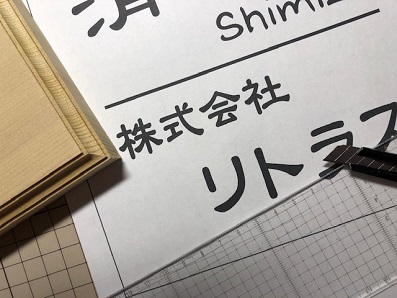 Shimiz
株式会社
リトラス